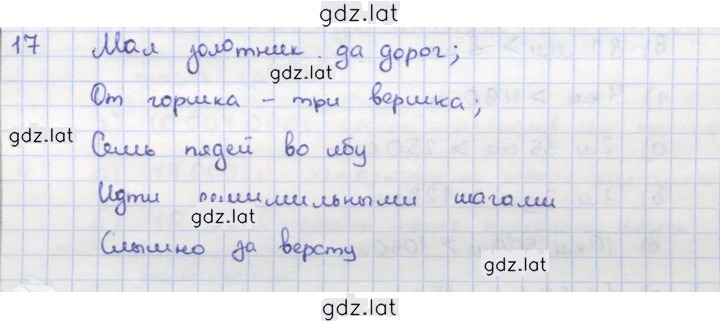 gdz.lat
17 Мал золотник да дорог;
gdz.lat
От горшка - три вершка;
gdz.lat
Семь пядей во лбу
gdz.lat
Идти семимильными шагами
gdz.lat
Слышно за версту
gdz.lat
gdz.lat